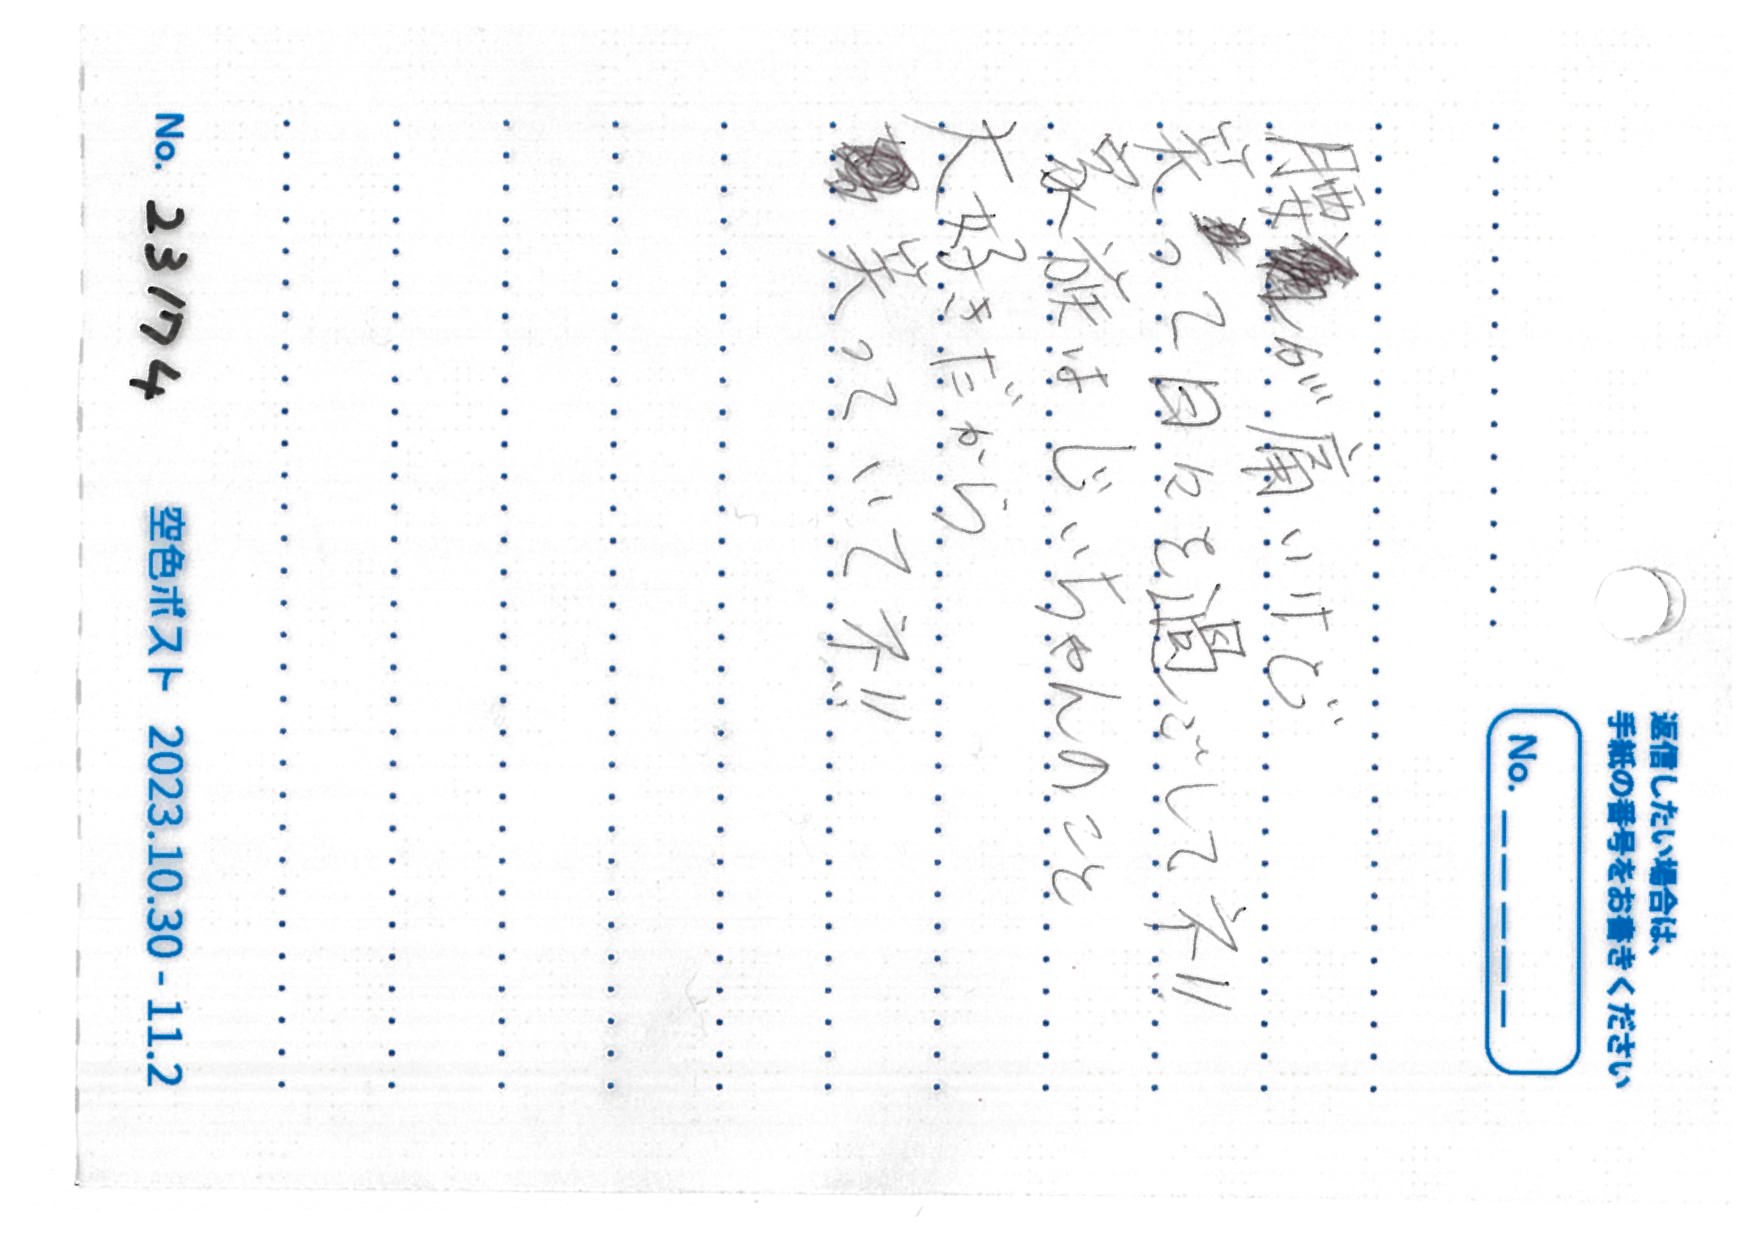 返信したい場合は、
手紙の番号をお書きください
No. _ _ _ _ _
腰が痛いけど
笑って日々を過ごしてネ!!
家族はじいちゃんのこと
大好きだから
笑っていてネ!!
No. 23174
空色ポスト 2023.10.30 - 11.2